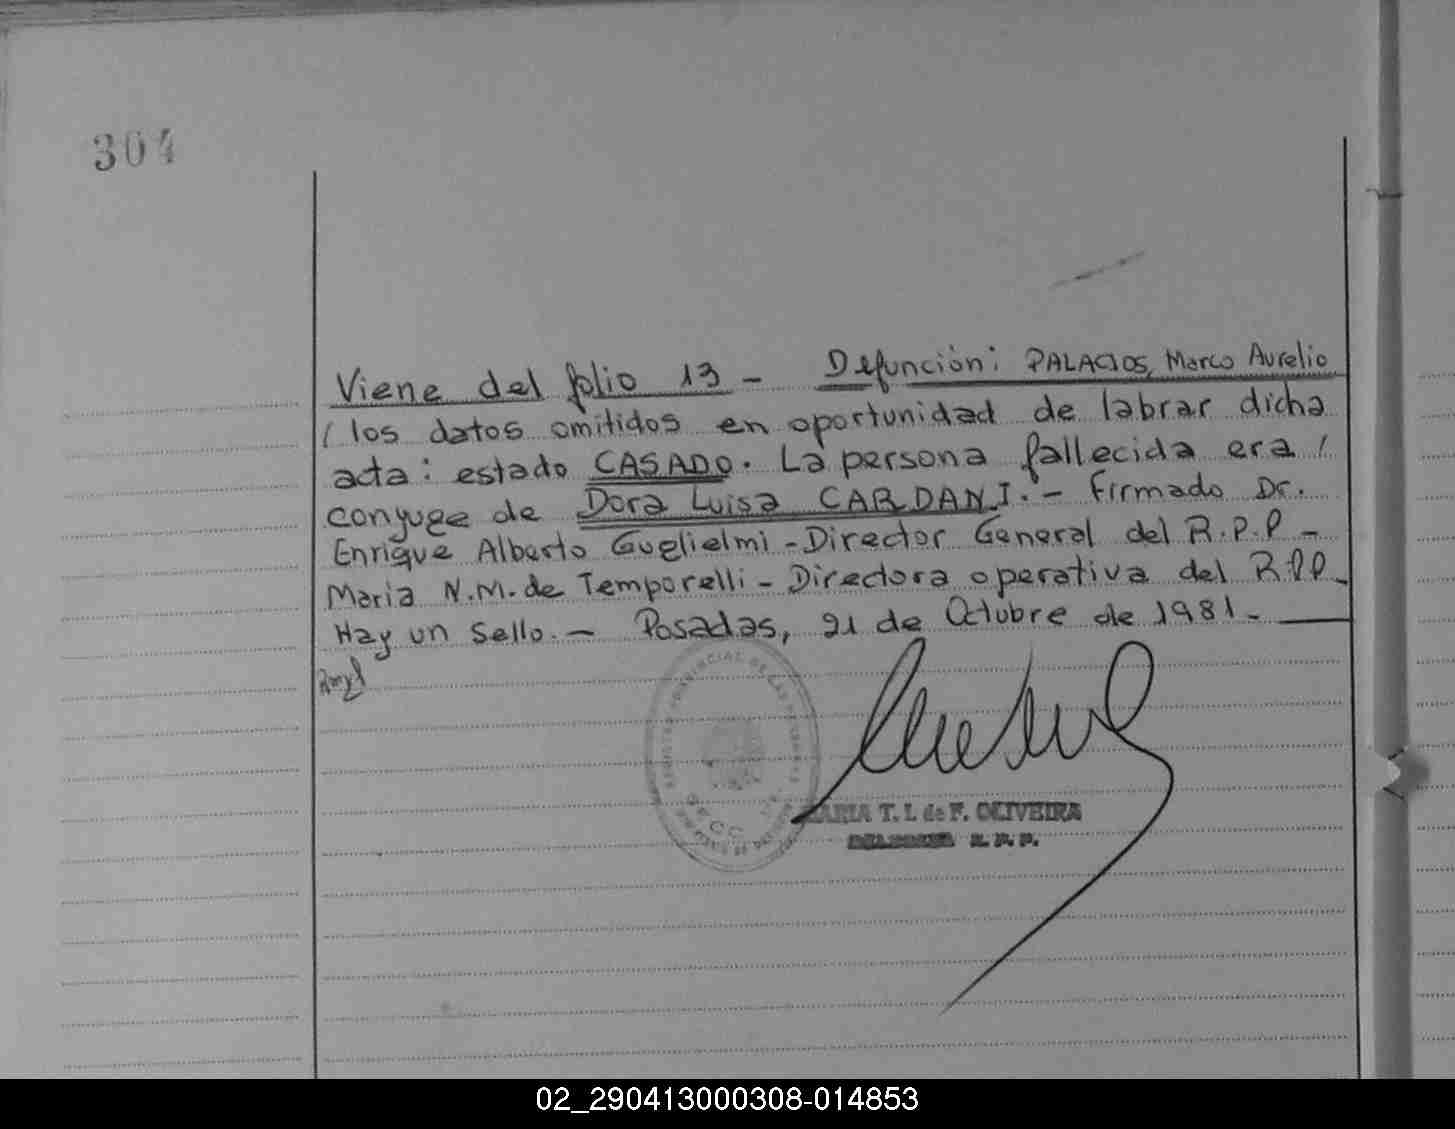 304
Viene del folio 13 - Defunción: PALACIOS, Marco Aurelio
/ los datos omitidos en oportunidad de labrar dicha
acta: estado CASADO. La persona fallecida era /
conyuge de Dora Luisa CARDANI. - Firmado Dr.
Enrique Alberto Guglielmi - Director General del R.P.P -
Maria N.M. de Temporelli - Directora operativa del R.P.P -
Hay un Sello. - Posadas, 21 de Octubre de 1981 -
PROVINCIAL DE LAS PERSONAS
MARIA T. I. de F. OLIVEIRA
R. P. P.
02_290413000308-014853